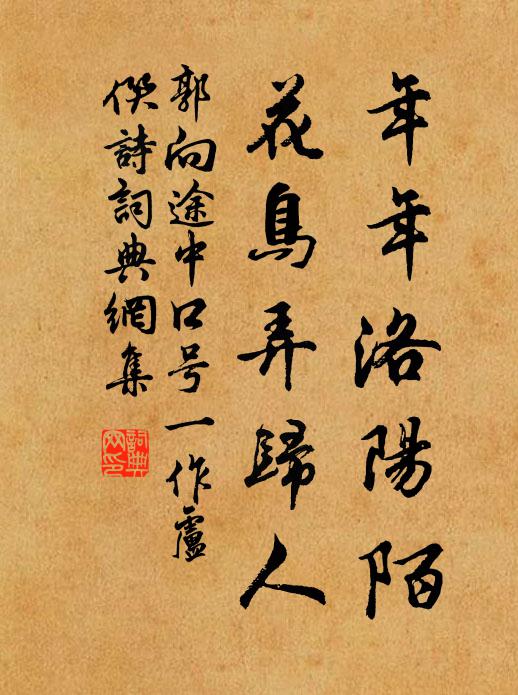 年年洛陽陌
花鳥弄歸人
郭向途中口号一作盧
僎詩詞典網集
詞典網印